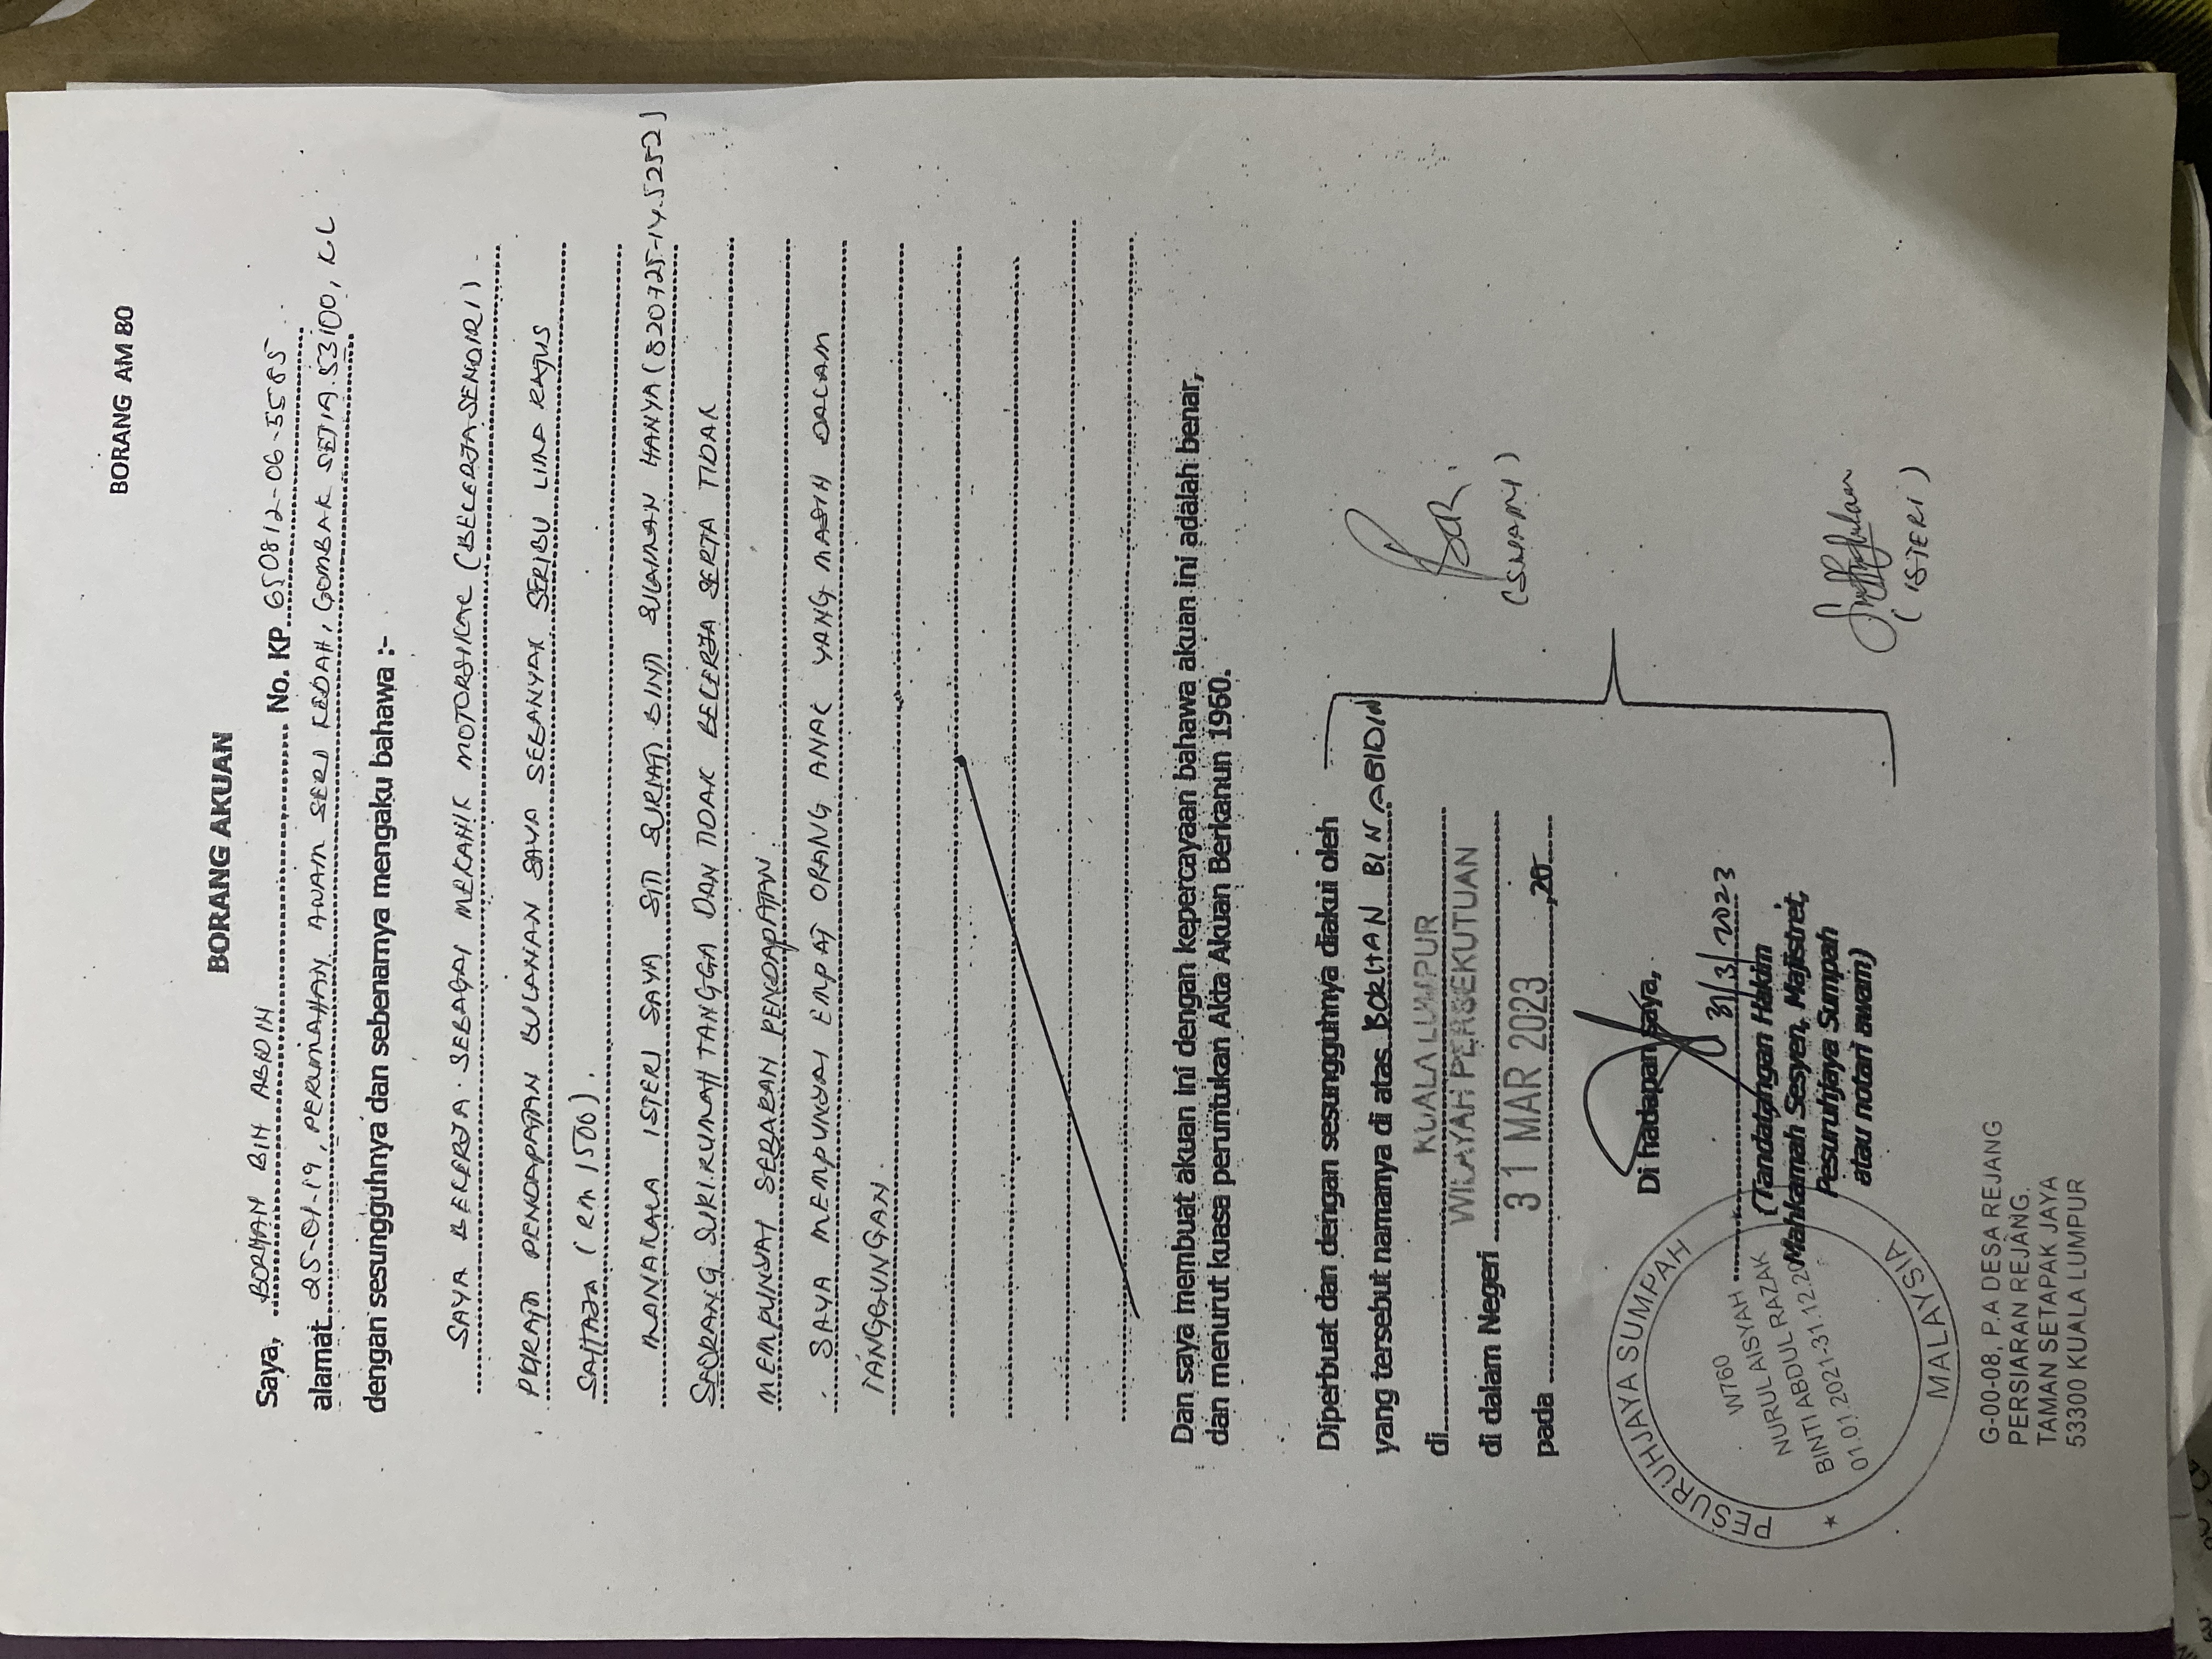 BORANG AM 80
BORANG AKUAN
Saya, BORHAN BIN ABIDIN No. KP 650812-06-5585
alamat 25-01-19, PERUMAHAN AWAM SERI KEDAH, GOMBAK SETIA. 53100, KL
dengan sesungguhnya dan sebenarnya mengaku bahawa :-
SAYA BEKERJA SEBAGAI MEKANIK MOTORSIKAL (BEKERJA SENDIRI).
PURATA PENDAPATAN BULANAN SAYA SEBANYAK SERIBU LIMA RATUS
SAHAJA (RM 1500).
MANAKALA ISTERI SAYA SITI SURIATI BINTI SULAIMAN HANYA (820725-14-5252)
SEORANG SURI RUMAH TANGGA DAN TIDAK BEKERJA SERTA TIDAK
MEMPUNYAI SEBARAN PENDAPATAN.
SAYA MEMPUNYAI EMPAT ORANG ANAK YANG MASIH DALAM
TANGGUNGAN.
Dan saya membuat akuan ini dengan kepercayaan bahawa akuan ini adalah benar,
dan menurut kuasa peruntukan Akta Akuan Berkanun 1960.
Diperbuat dan dengan sesungguhnya diakui oleh
yang tersebut namanya di atas BORHAN BIN ABIDIN
di KUALA LUMPUR
di dalam Negeri WILAYAH PERSEKUTUAN
pada 31 MAR 2023 ,20
BOR.
(SUAMI)
Di hadapan saya,
31/3/2023
(Tandatangan Hakim
Mahkamah Sesyen, Majistret,
Pesuruhjaya Sumpah
atau notari awam)
(ISTERI)
PESURUHJAYA SUMPAH
W760
NURUL AISYAH
BINTI ABDUL RAZAK
01.01.2021-31.12.20
MALAYSIA
G-00-08, P.A DESA REJANG
PERSIARAN REJANG.
TAMAN SETAPAK JAYA
53300 KUALA LUMPUR